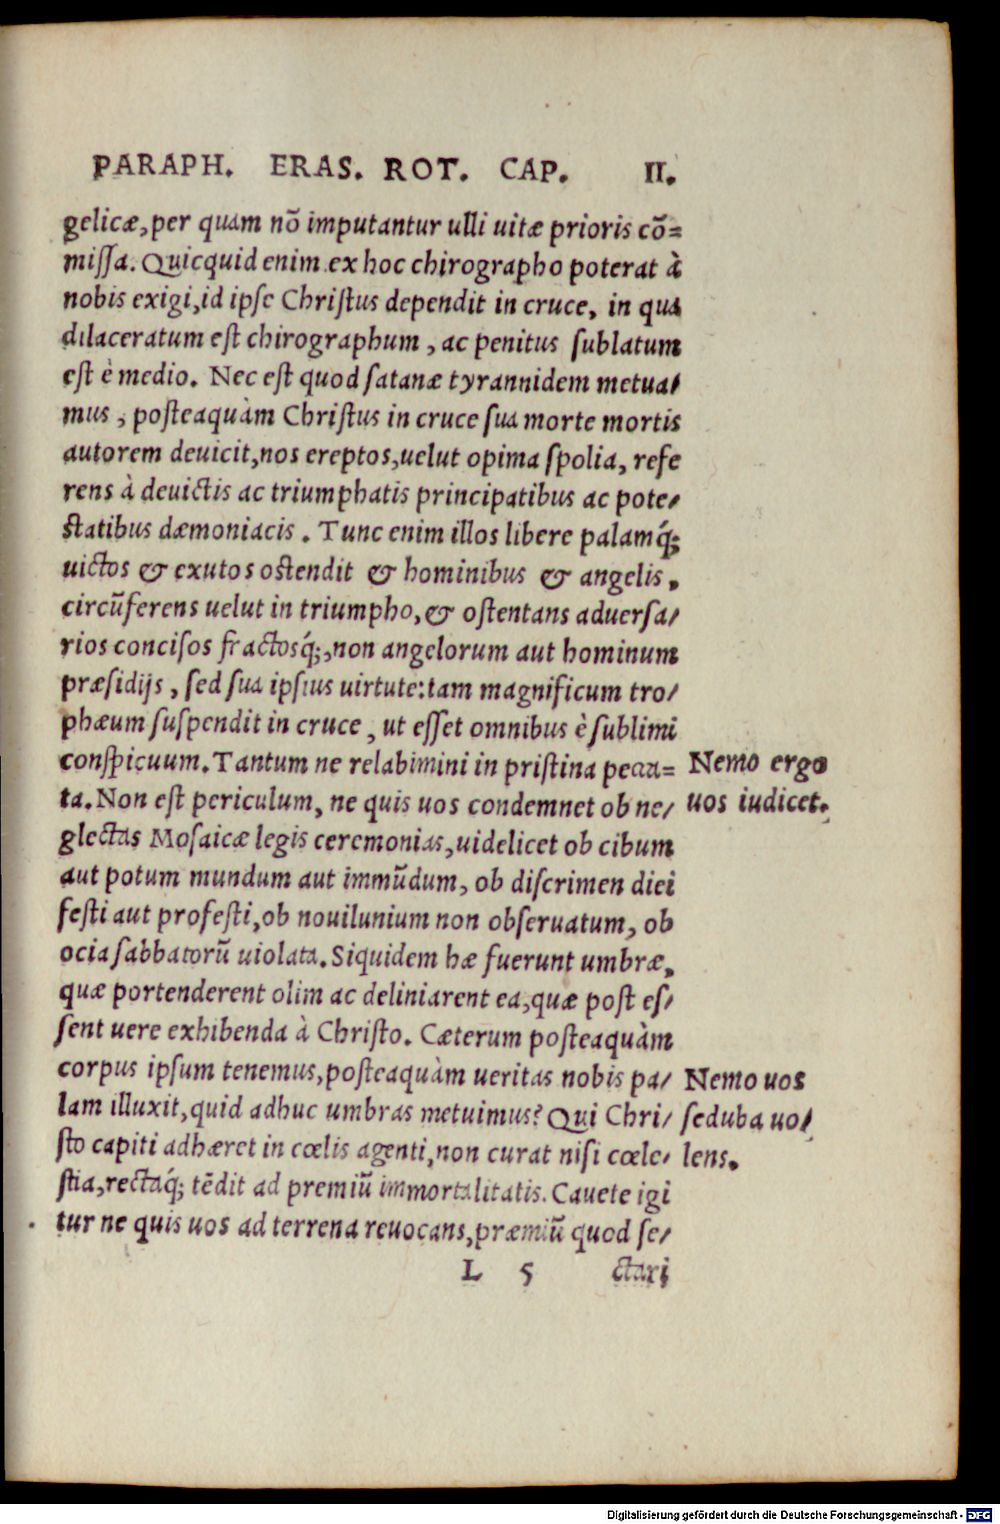 PARAPH. ERAS. ROT. CAP. II.
gelicæ, per quam nō imputantur ulli uitæ prioris cō=
missa. Quicquid enim ex hoc chirographo poterat à
nobis exigi, id ipse Christus dependit in cruce, in qua
dilaceratum est chirographum, ac penitus sublatum
est è medio. Nec est quod satanæ tyrannidem metua/
mus, posteaquàm Christus in cruce sua morte mortis
autorem deuicit, nos ereptos, uelut opima spolia, refe
rens à deuictis ac triumphatis principatibus ac pote/
statibus dæmoniacis. Tunc enim illos libere palamq́;
uictos & exutos ostendit & hominibus & angelis,
circūferens uelut in triumpho, & ostentans aduersa/
rios concisos fractosq́;, non angelorum aut hominum
præsidijs, sed sua ipsius uirtute: tam magnificum tro/
phæum suspendit in cruce, ut esset omnibus è sublimi
conspicuum. Tantum ne relabimini in pristina pecca=
ta. Non est periculum, ne quis uos condemnet ob ne/
glectas Mosaicæ legis ceremonias, uidelicet ob cibum
aut potum mundum aut immūdum, ob discrimen diei
festi aut profesti, ob nouilunium non obseruatum, ob
ocia sabbatorū uiolata. Siquidem hæ fuerunt umbræ,
quæ portenderent olim ac deliniarent ea, quæ post es/
sent uere exhibenda à Christo. Cæterum posteaquàm
corpus ipsum tenemus, posteaquàm ueritas nobis pa/
lam illuxit, quid adhuc umbras metuimus? Qui Chri/
sto capiti adhæret in cœlis agenti, non curat nisi cœle/
stia, rectaq́; tēdit ad premiū immortalitatis. Cauete igi
tur ne quis uos ad terrena reuocans, præmiū quod se/
L 5 ctari
Nemo ergo
uos iudicet.
Nemo uos
seduba uo/
lens.
Digitalisierung gefördert durch die Deutsche Forschungsgemeinschaft - DFG